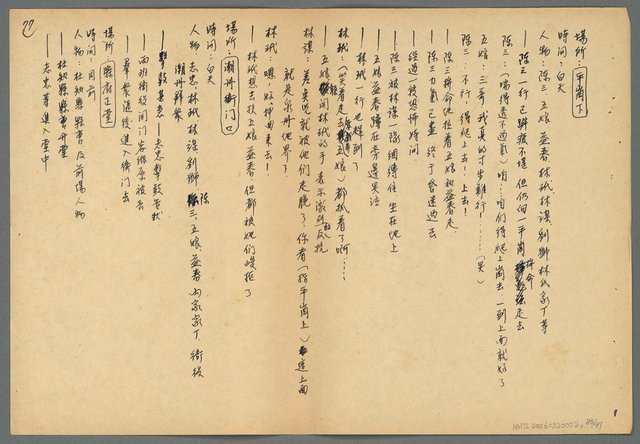 77
場所：平崗下
時間：白天
人物：陳三 五娘 益春 林玳 林謀 別獅 林氏家丁等
——陳三一行已疲不堪 但仍向一平崗拚命走去
陳三：（喘得透不過氣）咱…咱們得爬上崗去 一到上面就好了
五娘：三哥 我真的寸步難行！……（哭）
陳三：不行，得爬上去！上去！
——陳三拚命地拉着五娘和益春走
——陳三力氣已盡 終于昏迷過去
——經過一段恐怖時間
——陳三被林謀一隊綑縛住 坐在地上
——五娘益春縛在旁邊哭泣
——林玳一行也趕到了
林玳：（笑着走去五娘）都抓着了啊……
——五娘 林玳的手 表示激烈的反抗
林謀：差臭哩，就被他們走脫了，你看（指平崗上）這上面
就是泉州地界了
林玳：嗯，好，押回來去！
——林玳想去扶五娘益春 但都被她們峻拒了
場所：潮州衙門口
時間：白天
人物 志忠 林玳 林謀 別獅 陳三、五娘 益春 兩家家丁、衙役
潮州群眾
——擊鼓甚急——志忠擊鼓告狀
——兩班衙役開門 容線原被告
——羣眾隨後進入衙門去
場所 縣府正堂
時間：同前
人物：杜知縣 縣吏及前場人物
——杜知縣 縣吏升堂
——志忠等進入堂中
1
NMTL20060320002